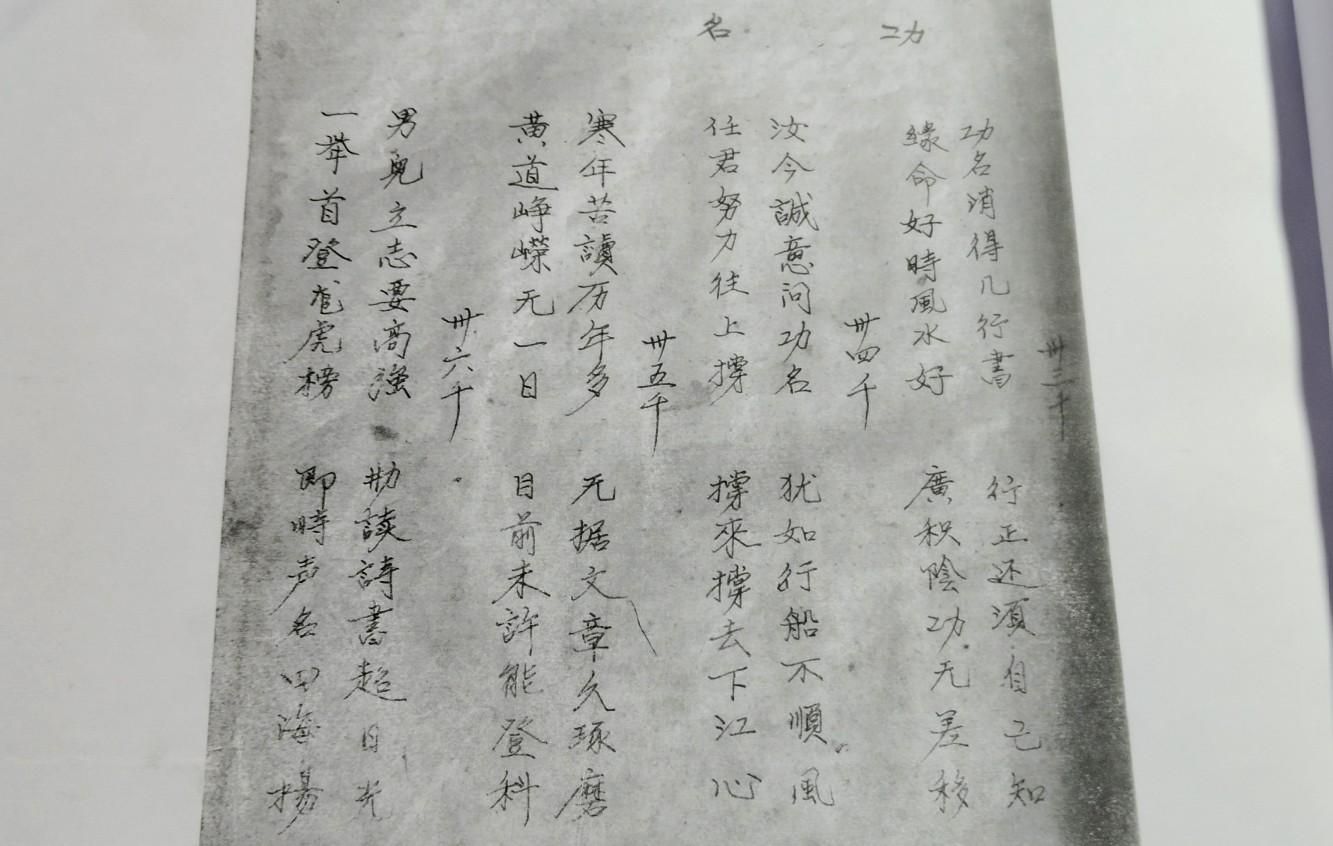 功名
卅三千
功名消得几行書 行正还須自己知
緣命好時風水好 廣积陰功无差移
卅四千
汝今誠意问功名 犹如行船不順風
任君努力往上撑 撑來撑去下江心
卅五千
寒年苦讀历年多 无据文章久琢磨
黄道峥嵘无一日 目前未許能登科
卅六千
男兒立志要高強 勤读詩書超日光
一举首登龙虎榜 即時声名四海揚